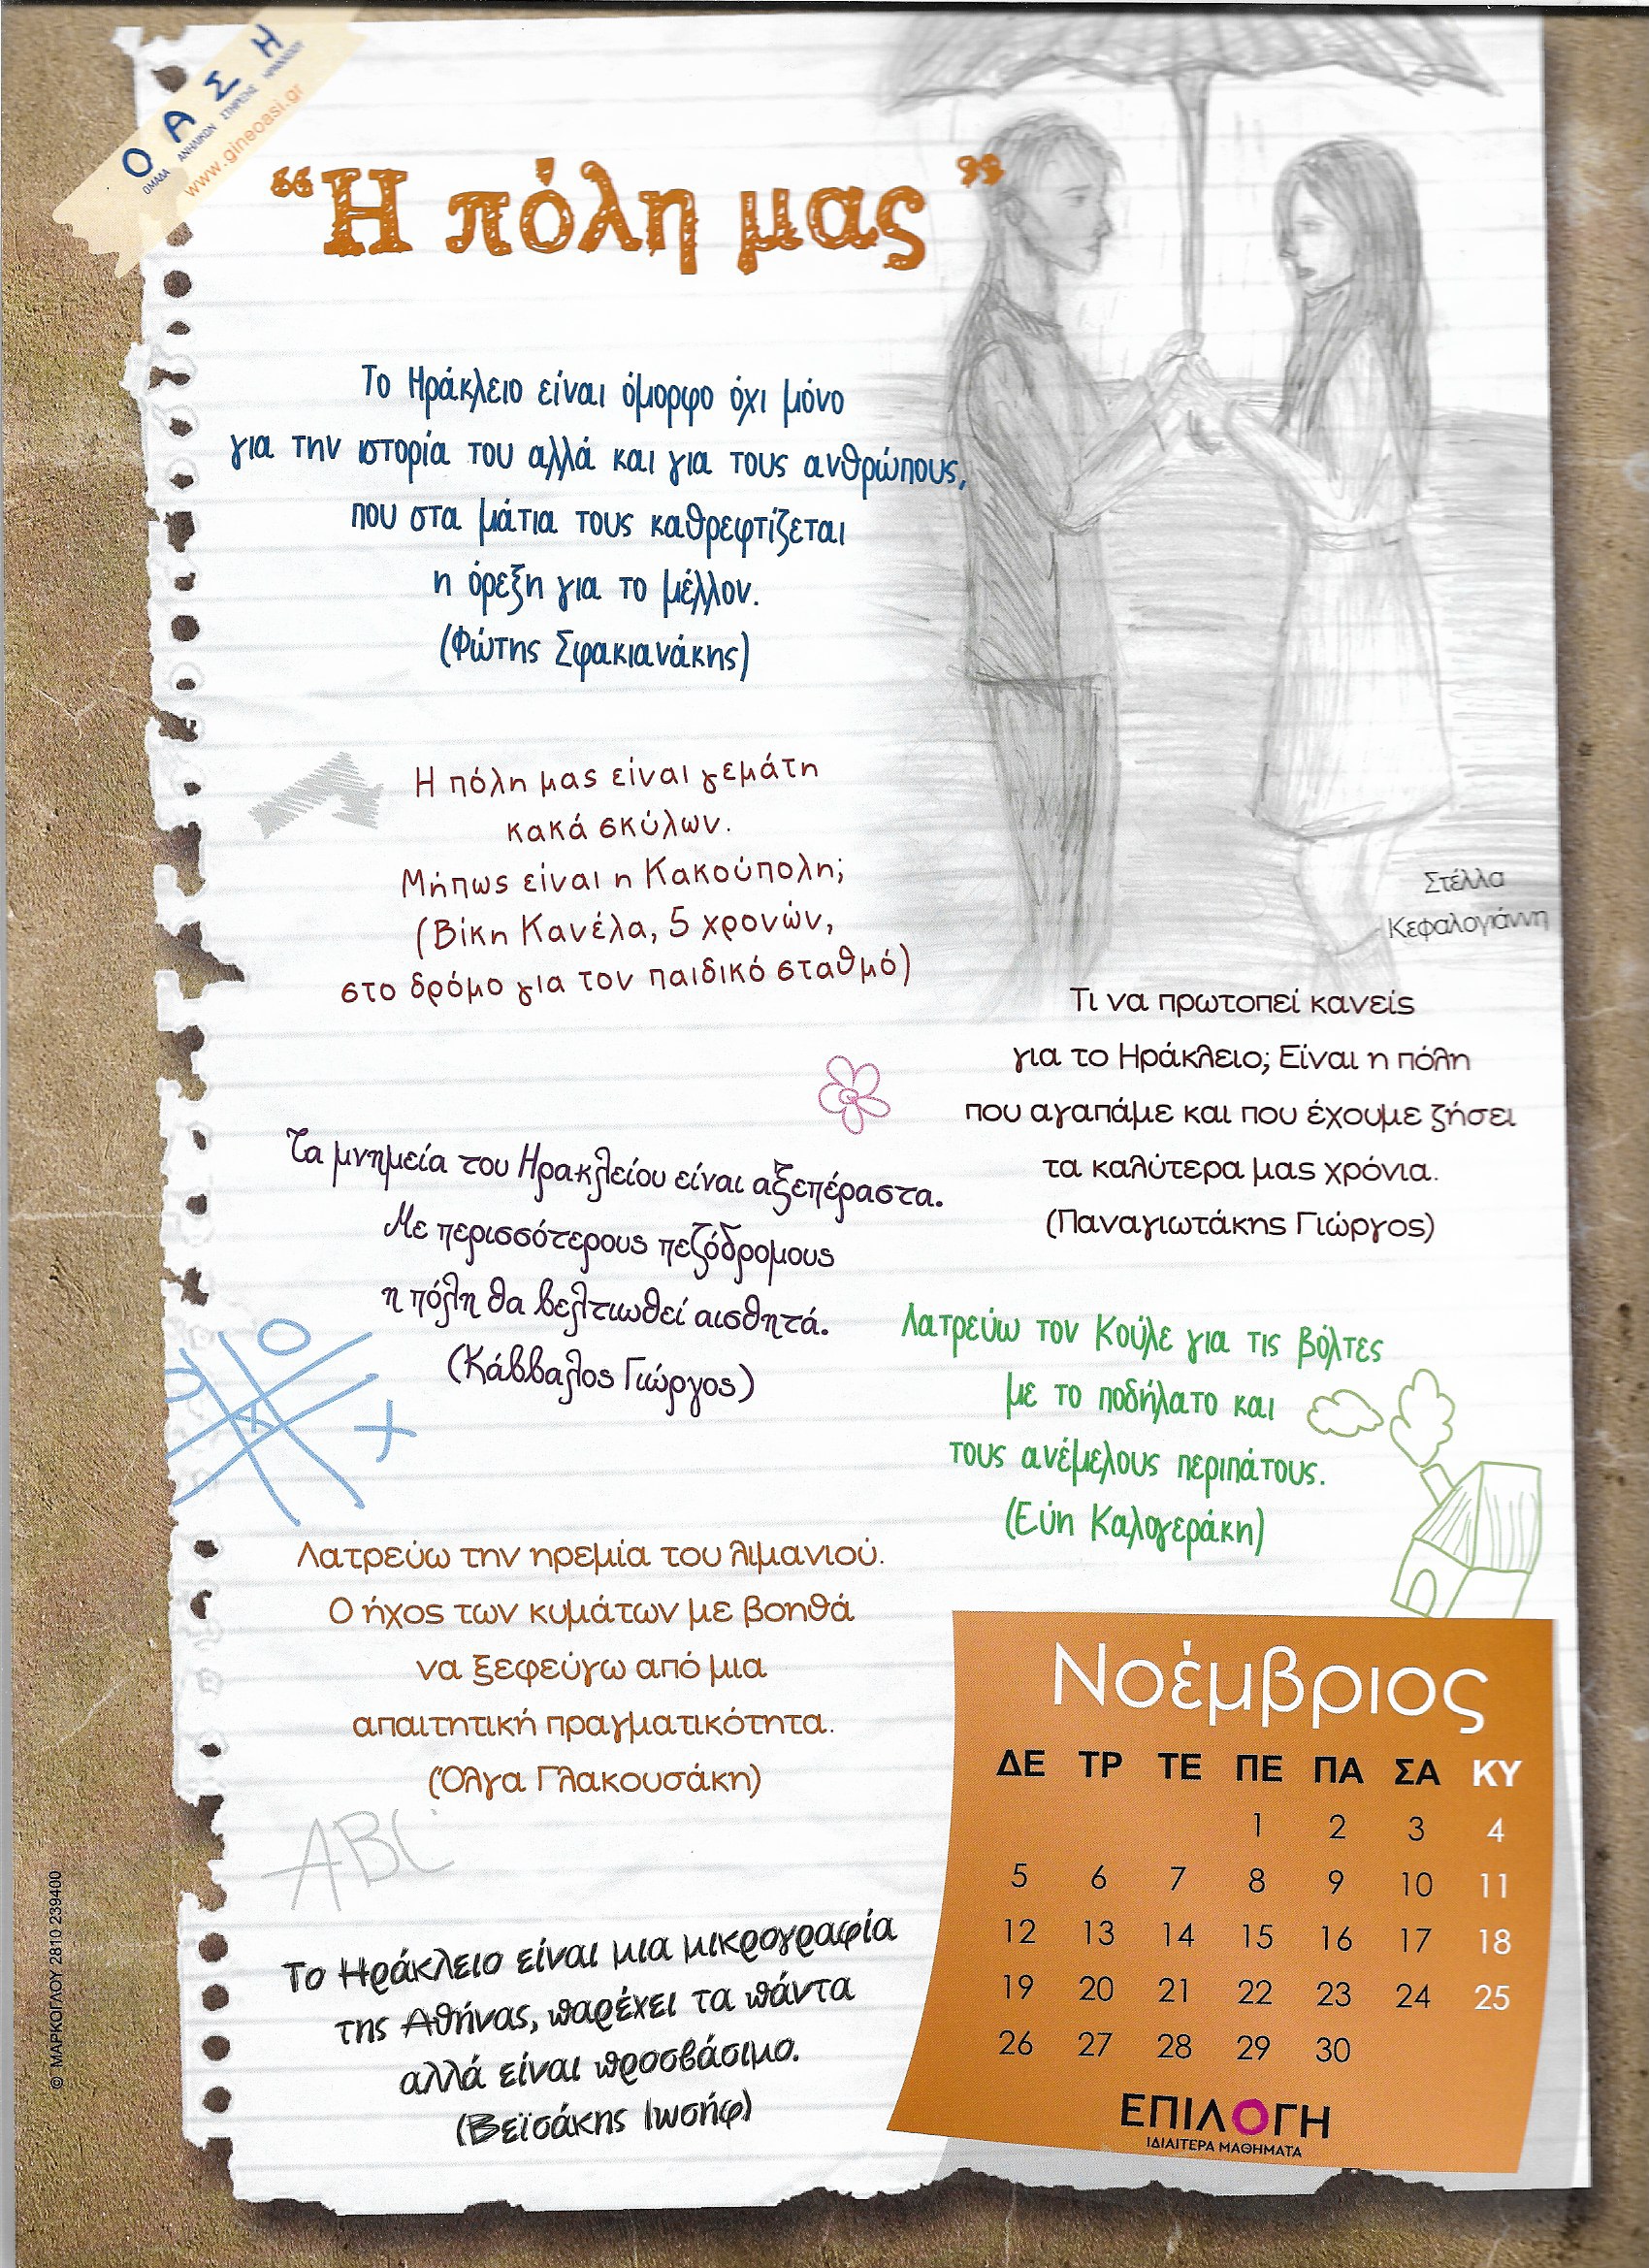 Ο Α Σ Η
ΟΜΑΔΑ ΑΝΗΛΙΚΩΝ ΣΤΗΡΙΞΗΣ ΗΡΑΚΛΕΙΟΥ
www.gineoasi.gr
“Η πόλη μας”
Το Ηράκλειο είναι όμορφο όχι μόνο
για την ιστορία του αλλά και για τους ανθρώπους,
που στα μάτια τους καθρεφτίζεται
η όρεξη για το μέλλον.
(Φώτης Σφακιανάκης)
Η πόλη μας είναι γεμάτη
κακά σκύλων.
Μήπως είναι η Κακούπολη;
(Βίκη Κανέλα, 5 χρονών,
στο δρόμο για τον παιδικό σταθμό)
Στέλλα
Κεφαλογιάννη
Τι να πρωτοπεί κανείς
για το Ηράκλειο; Είναι η πόλη
που αγαπάμε και που έχουμε ζήσει
τα καλύτερα μας χρόνια.
(Παναγιωτάκης Γιώργος)
Τα μνημεία του Ηρακλείου είναι αξεπέραστα.
Με περισσότερους πεζόδρομους
η πόλη θα βελτιωθεί αισθητά.
(Κάββαλος Γιώργος)
Λατρεύω τον Κούλε για τις βόλτες
με το ποδήλατο και
τους ανέμελους περιπάτους.
(Εύη Καλογεράκη)
Λατρεύω την ηρεμία του λιμανιού.
Ο ήχος των κυμάτων με βοηθά
να ξεφεύγω από μια
απαιτητική πραγματικότητα.
(Όλγα Γλακουσάκη)
ABC
Το Ηράκλειο είναι μια μικρογραφία
της Αθήνας, παρέχει τα πάντα
αλλά είναι προσβάσιμο.
(Βεϊσάκης Ιωσήφ)
Νοέμβριος
ΔΕ ΤΡ ΤΕ ΠΕ ΠΑ ΣΑ ΚΥ
1 2 3 4
5 6 7 8 9 10 11
12 13 14 15 16 17 18
19 20 21 22 23 24 25
26 27 28 29 30
ΕΠΙΛΟΓΗ
ΙΔΙΑΙΤΕΡΑ ΜΑΘΗΜΑΤΑ
© ΜΑΡΚΟΓΛΟΥ 2810 239400